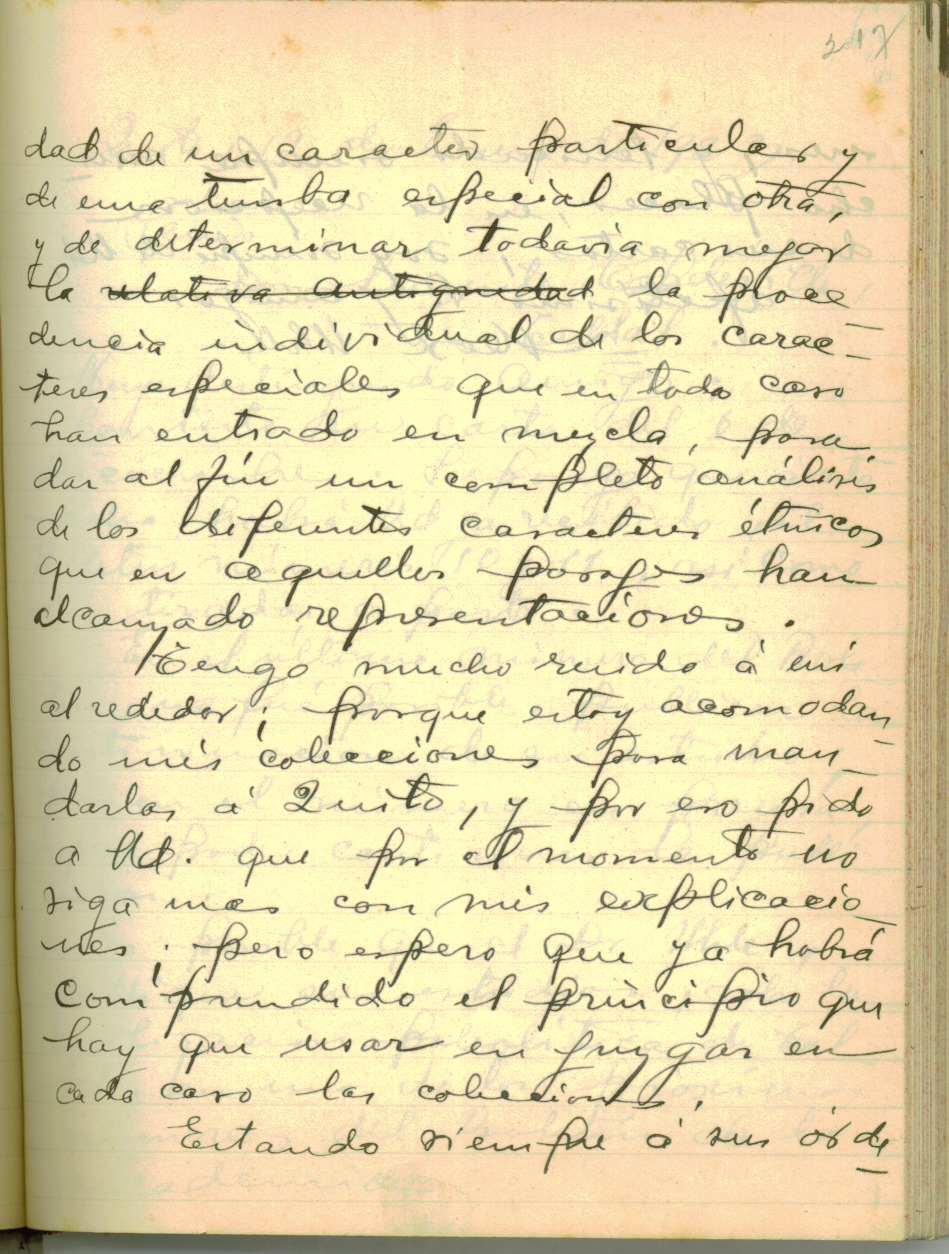 dad de un caracter particular y
de una tumba especial con otra,
y de determinar todavia mejor
la relativa antiguedad la proce-
dencia individual de los carac-
teres especiales que en todo caso
han entrado en mezcla, para
dar al fin un completo análisis
de los diferentes caracteres étnicos
que en aquellos parajes han
alcanzado representaciones.
Tengo mucho ruido á mi
al rededor; porque estoy acomodan-
do mis colecciones para man-
darlas á Quito, y por eso pido
a Ud. que por el momento no
siga mas con mis explicacio-
nes; pero espero que ya habrá
comprendido el principio que
hay que usar en juzgar en
cada caso las colecciones.
Estando siempre á sus órde-